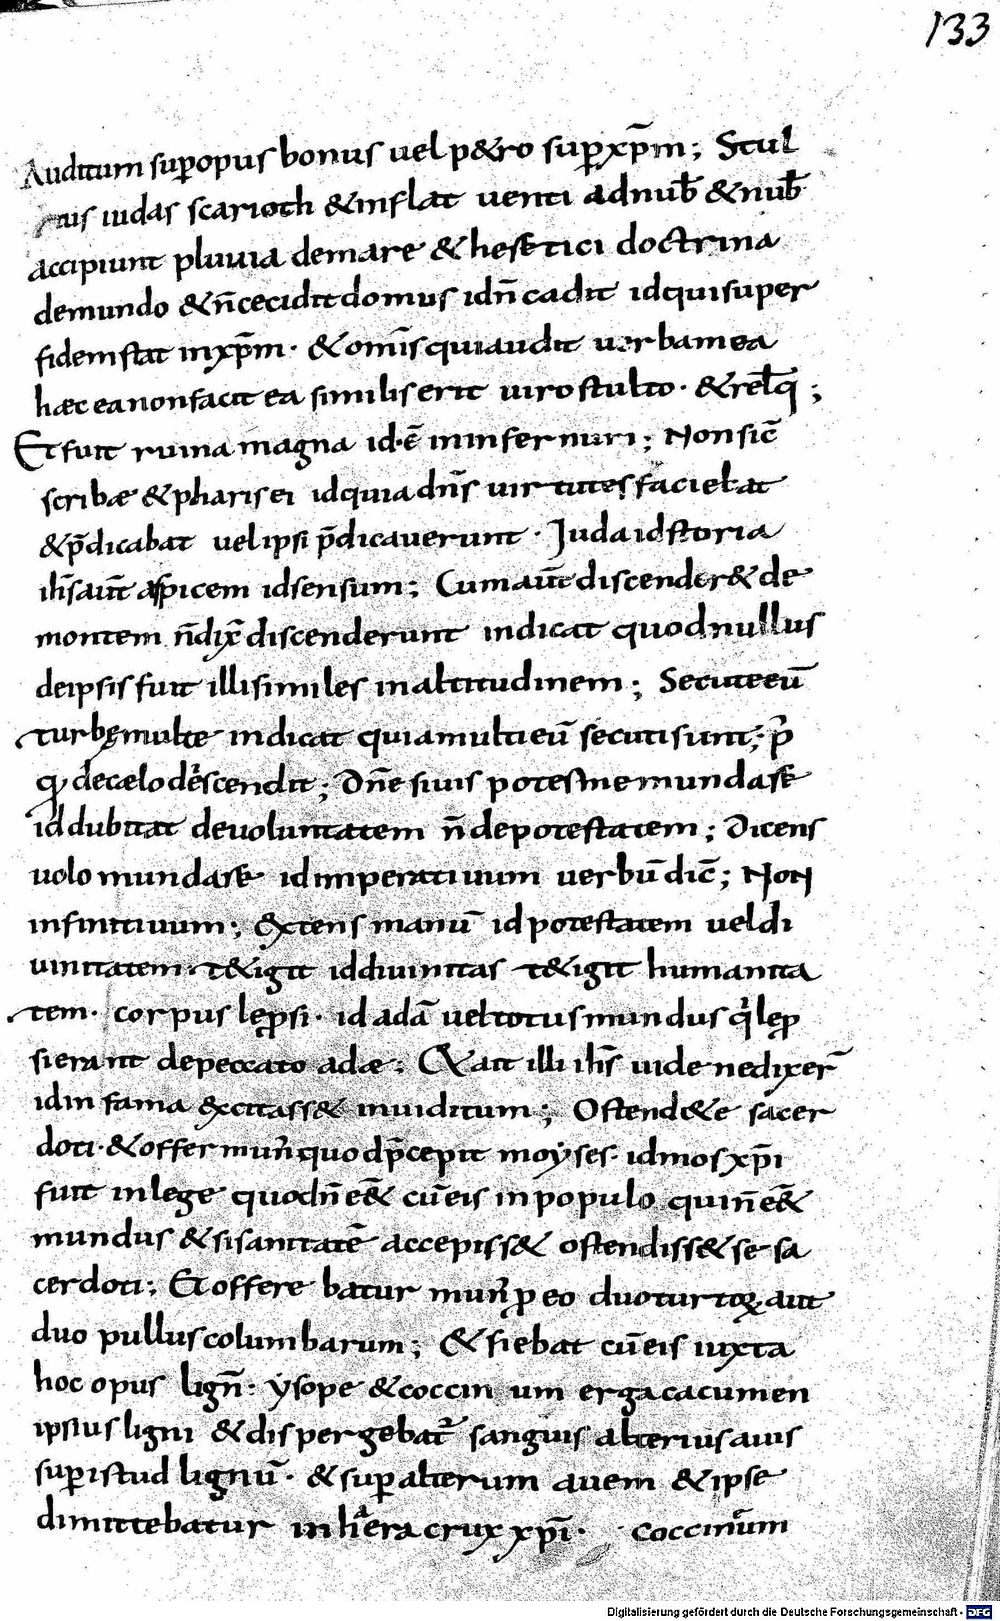 133
Auditum sup̱ opus bonus uel p&ro sup̱ xp̄m; Stul
tus iudas scarioth & inflat uenti ad nub̄ & nub̄
accipiunt pluuia de mare & heretici doctrina
de mundo & n̄ cecidit domus id n̄ cadit id qui super
fidem stat in xp̄m · & om̄is qui audit uerba mea
hæc ea non facit ea similis erit uiro stulto · & rel̄q ;
Et fuit ruina magna id · ē in infernum ; Non sic̄
scribæ & pharisei id quia dn̄s uirtutes faciebat
& p̄dicabat uel ipsi p̄dicauerunt · Juda id storia
ih̄s aut̄ aspicem id sensum ; Cum aut̄ discender& de
montem n̄ dix̄ discenderunt indicat quod nullus
de ipsis fuit illi similes in altitudinem ; Secute eū
turbę multe indicat quia multi eū secuti sunt ; p̄
q de cælo descendit ; Dn̄e si uis potes me mundare
id dubitat de uoluntatem n̄ de potestatem ; Dicens
uolo mundare id imperatiuum uerbū dic̄ ; Non
infinitiuum ; Extens manū id potestatem uel di
uinitatem · t&igit id diuinitas t&igit humanita
tem · corpus lep̱si · id adā uel totus mundus q̇ lep̱
sierant de peccato adæ ; Et ait illi ih̄s uide ne dixer̄
id in fama excitass& inuiditum ; Ostende te sacer
doti · & offer mun̄ quod p̄cepit moẏses · id mos xp̄i
fuit in lege quod n̄ e&̄ cū eis in populo qui n̄ e&̄
mundus & si sanitatē accepiss& ostendiss& se sa
cerdoti ; Et offerebatur mun̄ p̱ eo duo turtoꝝ aut
duo pullus columbarum ; & fiebat cū eis iuxta
hoc opus lign̄ : ẏsope & coccinum erga cacumen
ipsius ligni & dispergebat̄ sanguis alterius auis
sup̱ istud lignū · & sup̱ alterum auem & ipse
dimittebatur in h̄era crux xp̄i · coccinum
Digitalisierung gefördert durch die Deutsche Forschungsgemeinschaft - DFG